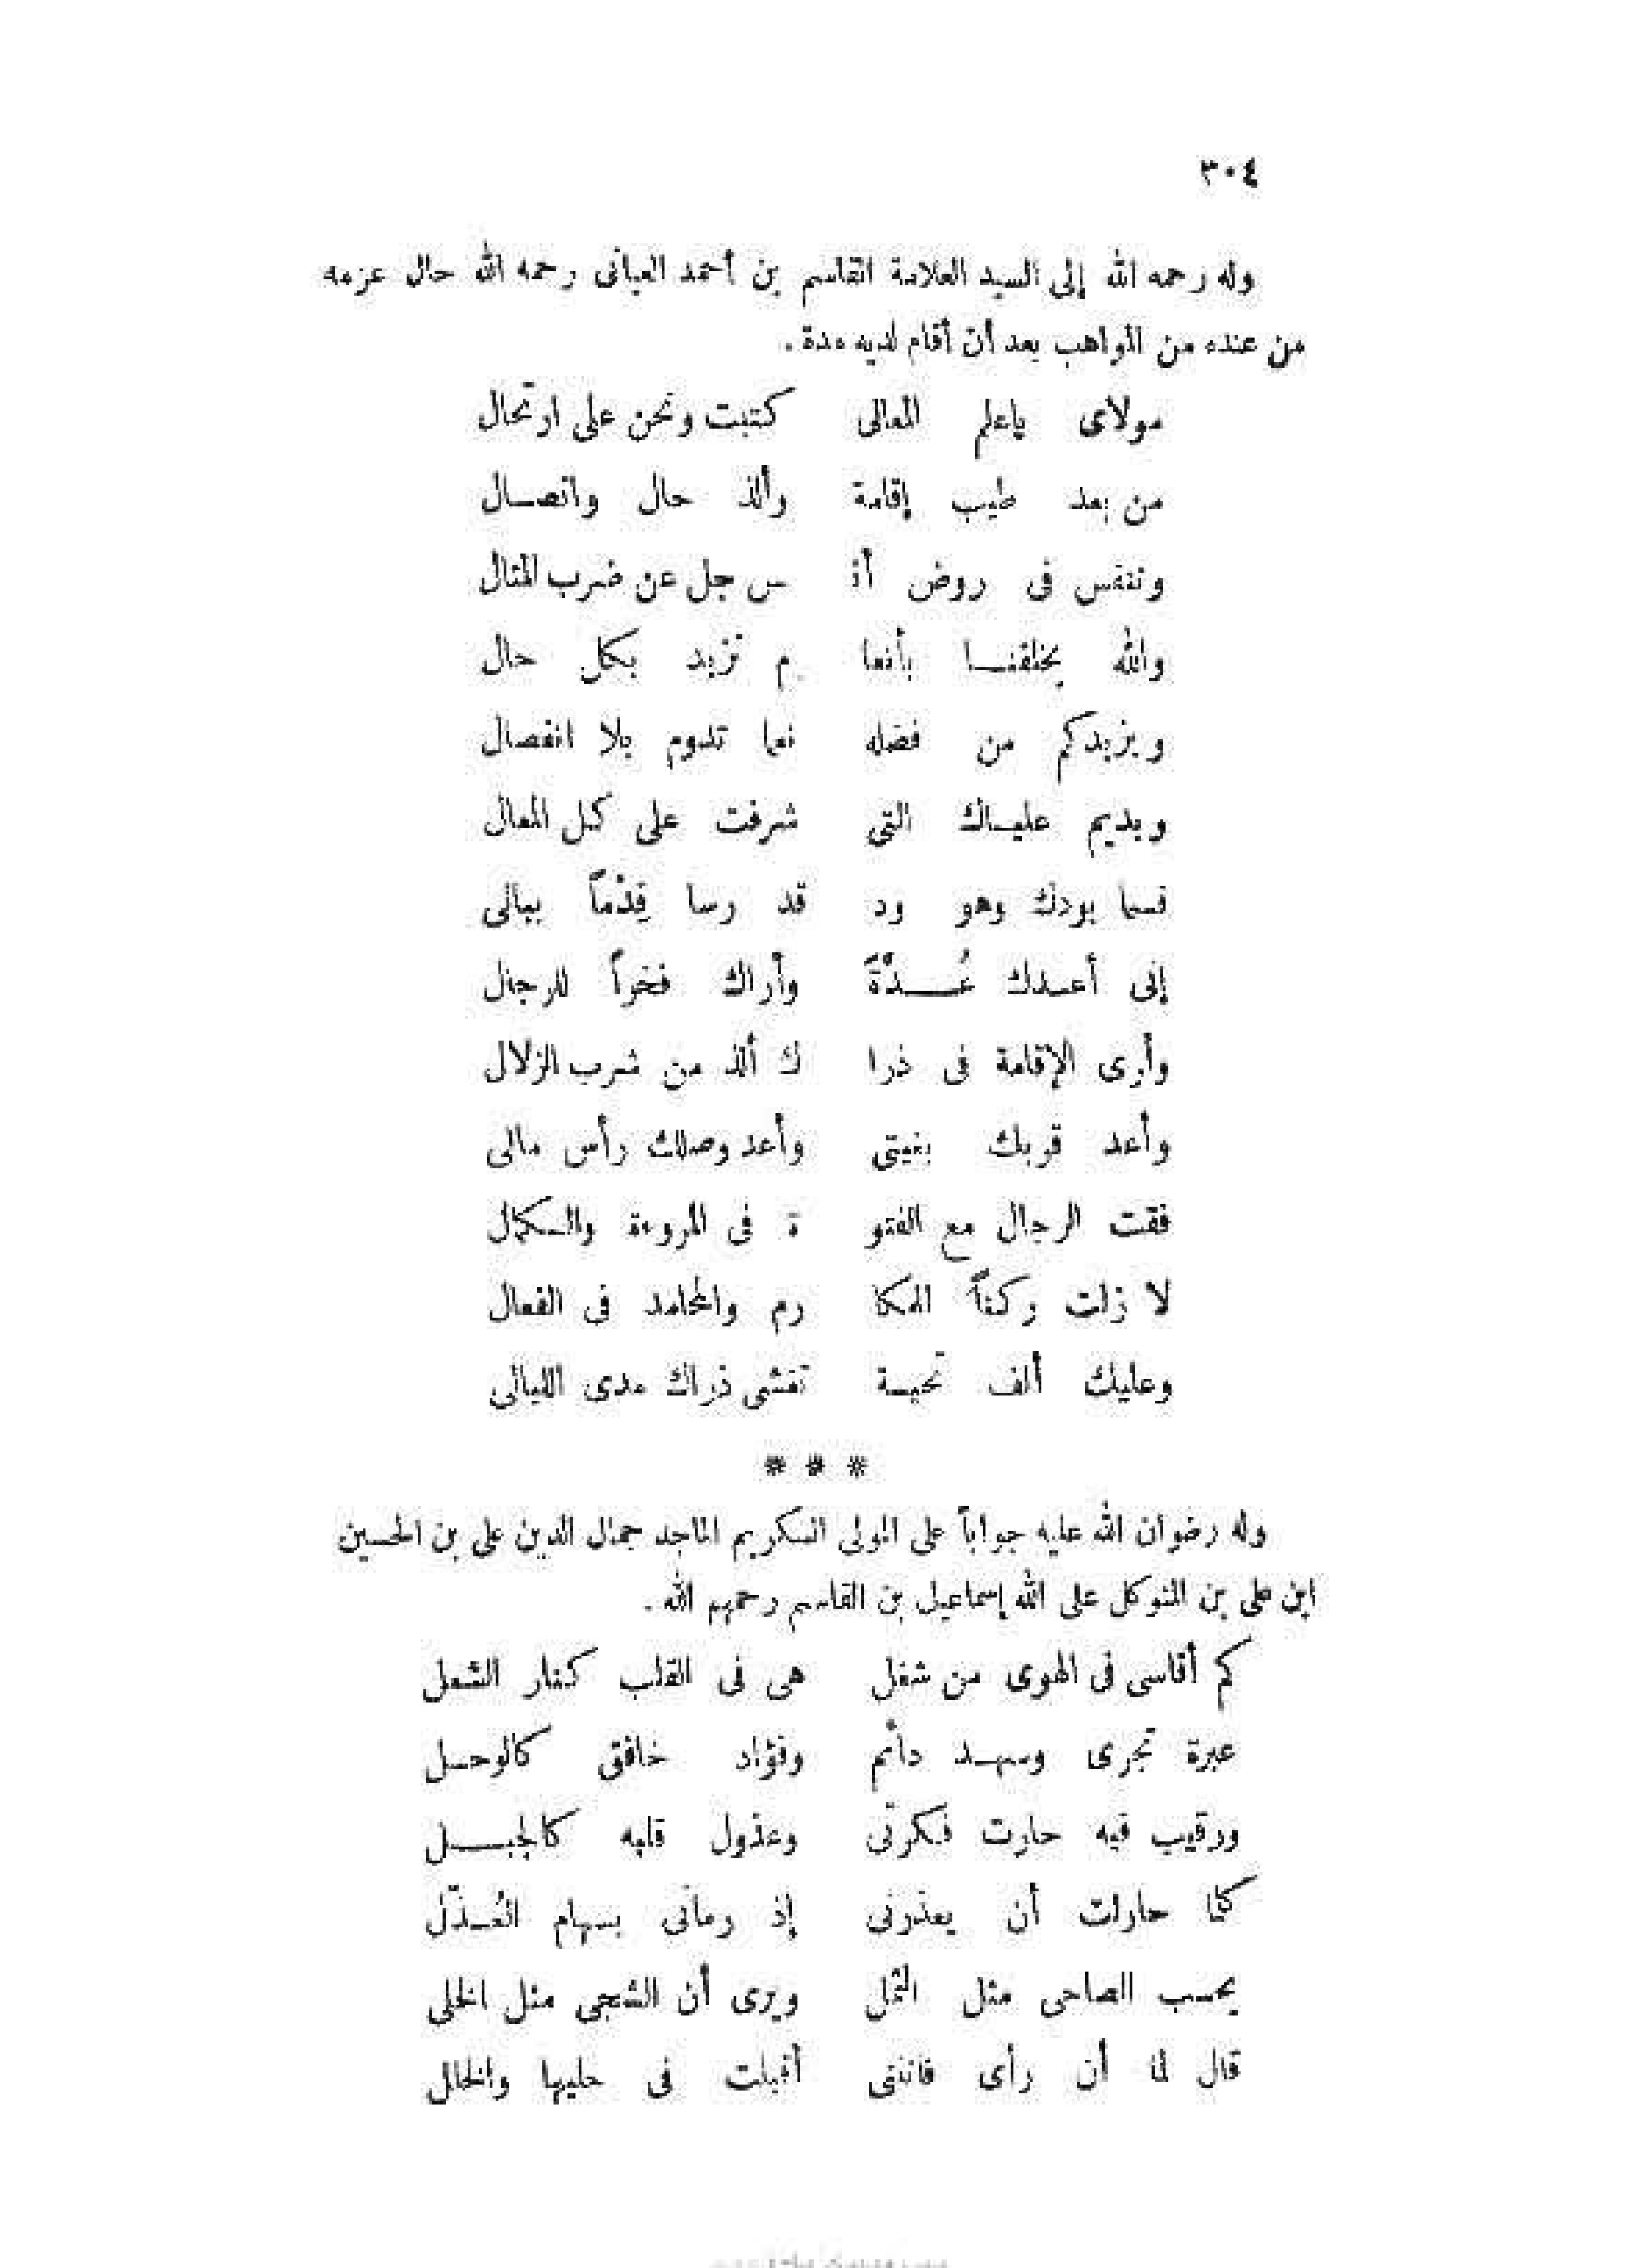 ٣٠٤
وله رحمه الله إلى السيد العلامة القاسم بن أحمد العياني رحمه الله حال عزمه
من عنده من المواهب بعد أن أقام لديه مدة .
مولاى ياعلم المعالى كتبت ونحن على ارتحال
من بعد طيب إقامة وألذ حال واتصال
وتنفس فى روض أنـ ـس جل عن ضرب المثال
والله يخلفنا بأنعا م تزيد بكل حال
ويزيدكم من فضله نعما تدوم بلا انفصال
ويديم علياك التى شرفت على كل المعال
قسما بودك وهو ود قد رسا قِدْماً ببالى
إنى أعدك عُدَّةً وأراك فخراً للرجال
وأرى الإقامة فى ذرا ك ألذ من شرب الزلال
وأعد قربك بغيتى وأعد وصلك رأس مالى
فقت الرجال مع الفتو ة فى المروءة والكمال
لا زلت ركناً للمكا رم والمحامد فى الفعال
وعليك ألف تحية تغشى ذراك مدى الليالى
* * *
وله رضوان الله عليه جواباً على المولى الكريم الماجد جمال الدين على بن الحسين
ابن على بن المتوكل على الله إسماعيل بن القاسم رحمهم الله .
كم أقاسى فى الهوى من شغل هى فى القلب كنار الشعل
عبرة تجرى وسهد دائم وفؤاد خافق كالوحل
ورقيب فيه حارت فكرتى وعذول قلبه كالجبل
كلما حاولت أن يعذرنى إذ رمانى بسهام العُذَّل
يحسب الصاحى مثل الثمل ويرى أن الشجى مثل الخلى
قال لما أن رأى فاتنتى أقبلت فى حليها والحلل